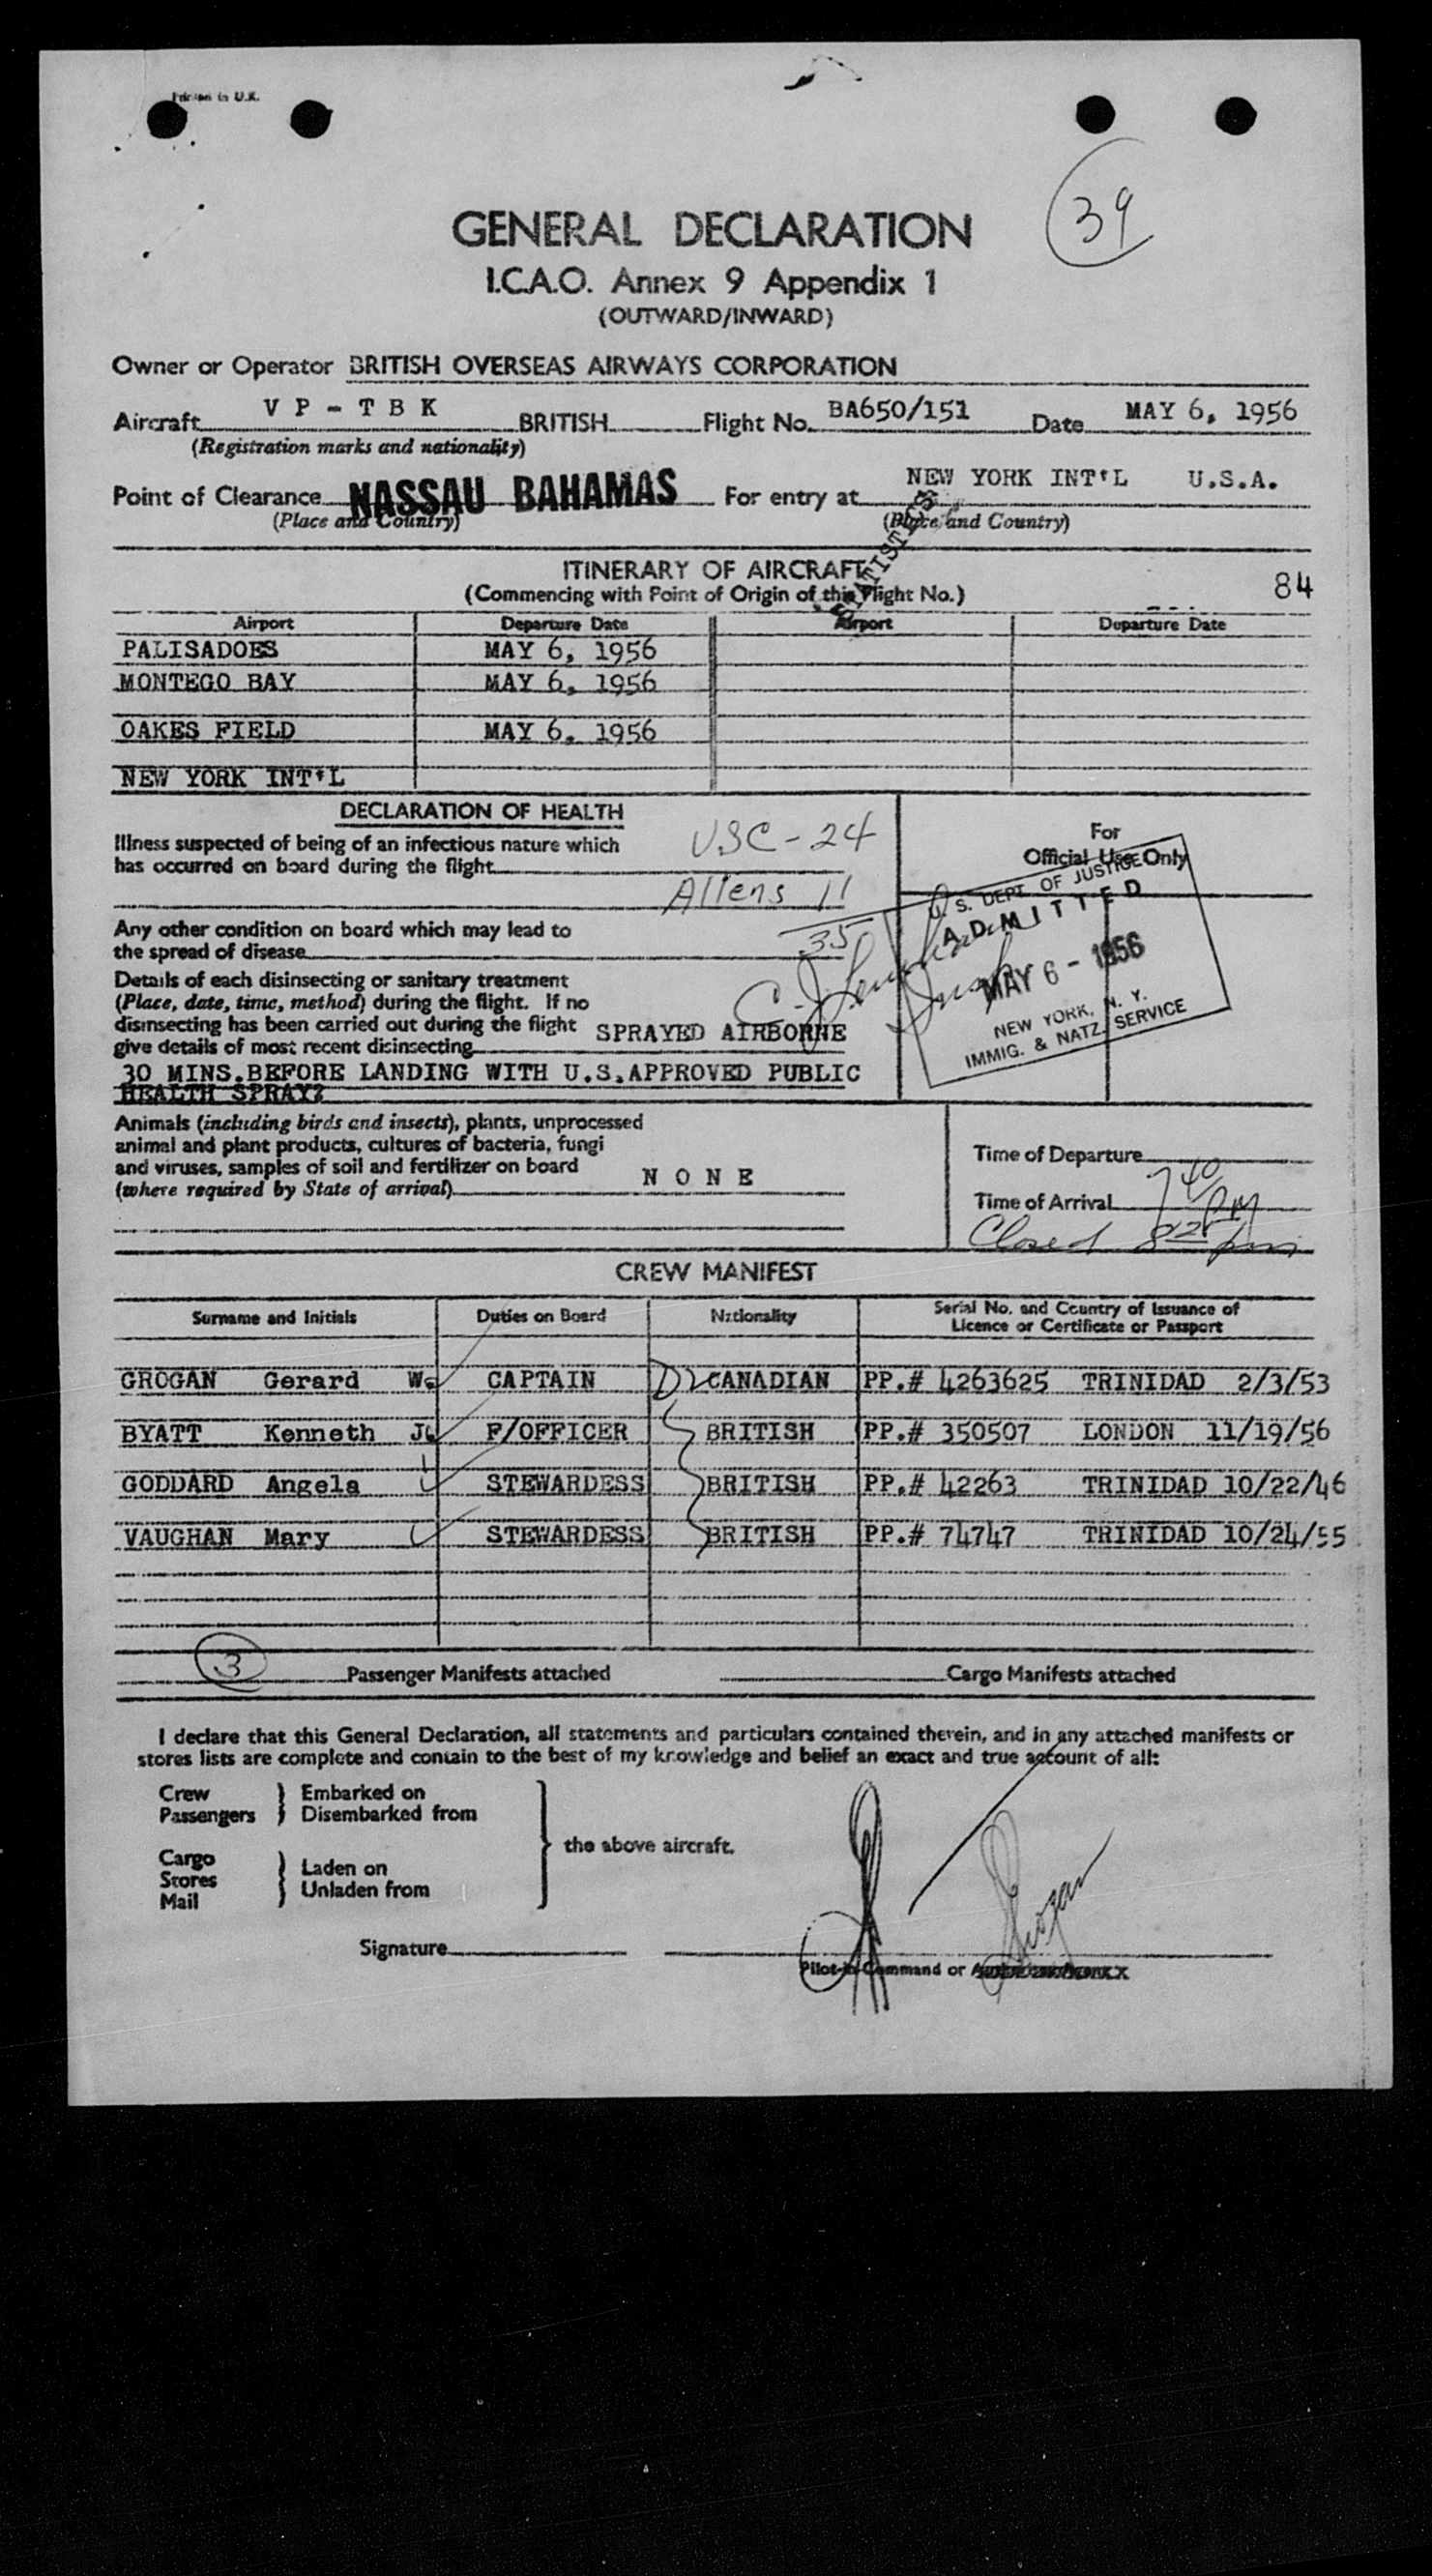 Printed in U.K.
39
GENERAL DECLARATION
I.C.A.O. Annex 9 Appendix 1
(OUTWARD/INWARD)
Owner or Operator BRITISH OVERSEAS AIRWAYS CORPORATION
Aircraft VP-TBK BRITISH Flight No. BA650/151 Date MAY 6, 1956
(Registration marks and nationality)
Point of Clearance NASSAU BAHAMAS For entry at NEW YORK INT'L U.S.A.
(Place and Country) (Place and Country)
STATISTICS
ITINERARY OF AIRCRAFT
(Commencing with Point of Origin of this Flight No.) 84
Airport Departure Date Airport Departure Date
PALISADOES MAY 6, 1956
MONTEGO BAY MAY 6, 1956
OAKES FIELD MAY 6, 1956
NEW YORK INT'L
DECLARATION OF HEALTH
Illness suspected of being of an infectious nature which
has occurred on board during the flight
USC-24
Aliens 11
35
For
Official Use Only
U. S. DEPT. OF JUSTICE
ADMITTED
MAY 6 - 1956
NEW YORK, N. Y.
IMMIG. & NATZ. SERVICE
Any other condition on board which may lead to
the spread of disease
Details of each disinsecting or sanitary treatment
(Place, date, time, method) during the flight. If no
disinsecting has been carried out during the flight
give details of most recent disinsecting SPRAYED AIRBORNE
30 MINS.BEFORE LANDING WITH U.S.APPROVED PUBLIC
HEALTH SPRAY?
Animals (including birds and insects), plants, unprocessed
animal and plant products, cultures of bacteria, fungi
and viruses, samples of soil and fertilizer on board
(where required by State of arrival) NONE
Time of Departure
Time of Arrival 7 40 PM
Closed 8 25 pm
CREW MANIFEST
Surname and Initials Duties on Board Nationality Serial No. and Country of Issuance of
Licence or Certificate or Passport
GROGAN Gerard W. CAPTAIN CANADIAN PP.# 4263625 TRINIDAD 2/3/53
BYATT Kenneth J. F/OFFICER BRITISH PP.# 350507 LONDON 11/19/56
GODDARD Angela STEWARDESS BRITISH PP.# 42263 TRINIDAD 10/22/46
VAUGHAN Mary STEWARDESS BRITISH PP.# 74747 TRINIDAD 10/24/55
3 Passenger Manifests attached Cargo Manifests attached
I declare that this General Declaration, all statements and particulars contained therein, and in any attached manifests or
stores lists are complete and contain to the best of my knowledge and belief an exact and true account of all:
Crew Embarked on
Passengers Disembarked from
the above aircraft.
Cargo Laden on
Stores Unladen from
Mail
Signature Grogan
Pilot-in-Command or